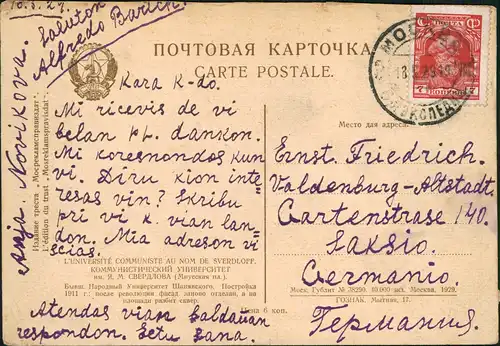 10.3.29.
Saluton
Alfredo
ПОЧТОВАЯ КАРТОЧКА
CARTE POSTALE.
МОСКВА
ПОЧТА
Kara K-do.
Mi ricevis de vi
belan pk. dankon.
Mi korespondos kun
vi. Diru kion inte-
resas vin? Skribu
pri vi k. vian lan-
don. Mia adreson vi
scias.
Anja. Novikova.
Издание треста „Мосрекламсправиздат“
L'édition du trust „Mosreklamspravisdat“
Место для адреса.
Ernst. Friedrich.
Valdenburg-Altstadt
Gartenstrase 140.
Saksio.
Germanio.
Германия.
L'UNIVERSITÉ COMMUNISTE AU NOM DE SVERDLOFF.
КОММУНИСТИЧЕСКИЙ УНИВЕРСИТЕТ
им. Я. М. СВЕРДЛОВА (Миусская пл.).
Бывш. Народный Университет Шанявского. Постройка
1911 г.; после революции фасад заново отделан, а на
площади разбит сквер.
Цена 6 коп.
Моск. Гублит № 38290. 10.000 экз. Москва, 1929.
ГОЗНАК. Мытная, 17.
Atendas vian baldaŭan
respondon. Estu sana.